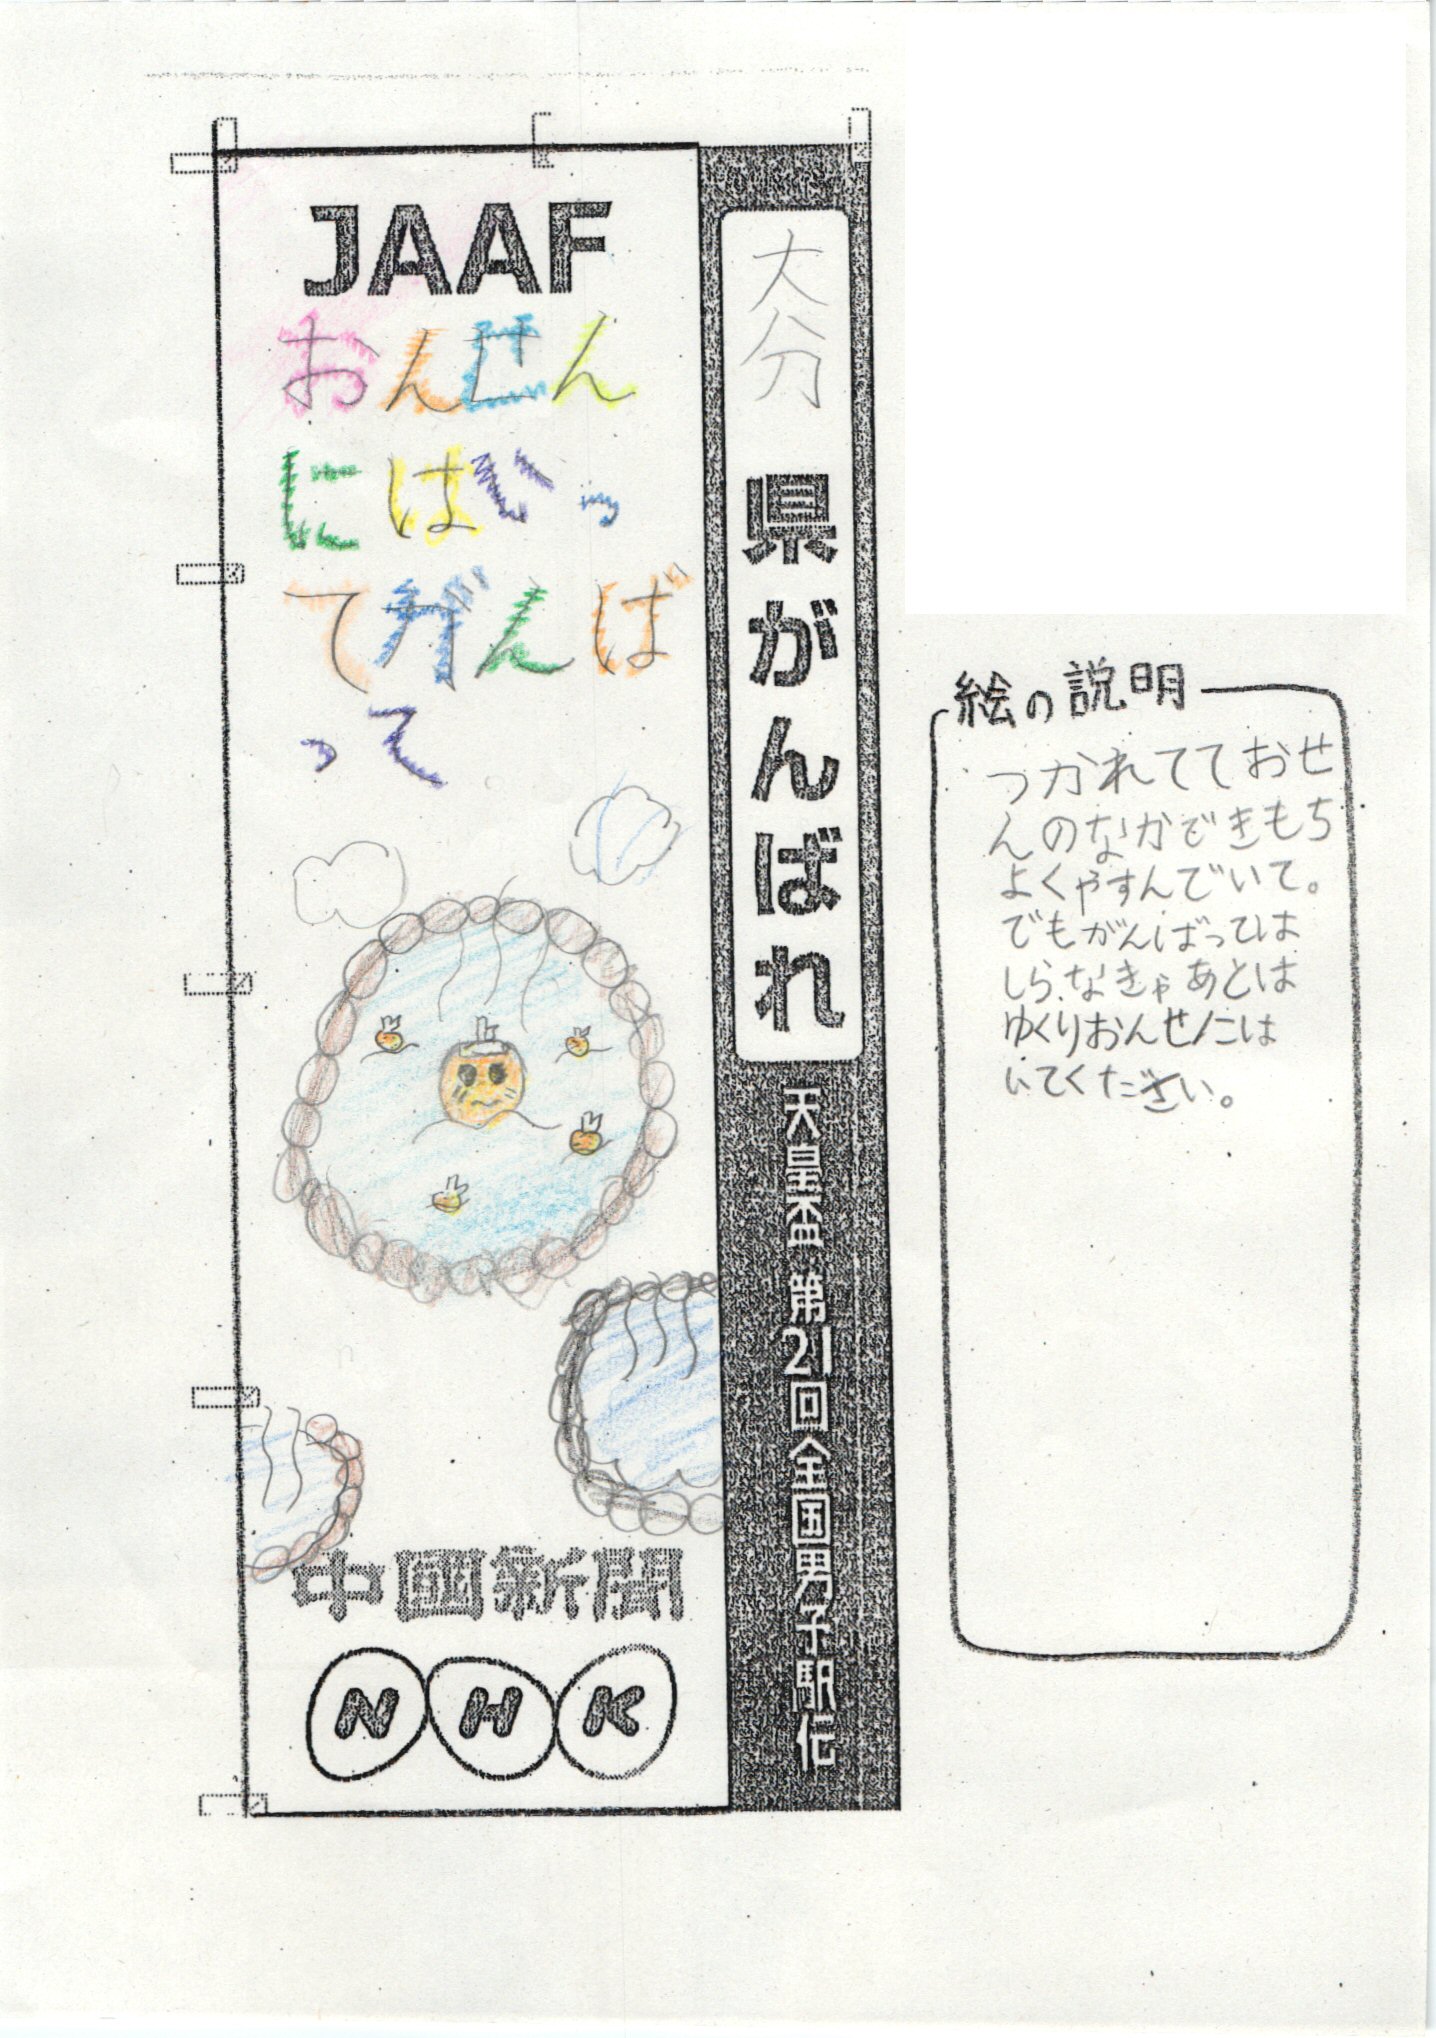 JAAF
おんせん
にはいっ
てがんば
って
中國新聞
NHK
大分県がんばれ
天皇盃 第21回全国男子駅伝
絵の説明
つかれてておせ
んのなかできもち
よくやすんでいて。
でもがんばっては
しらなきゃあとは
ゆくりおんせんには
いてください。